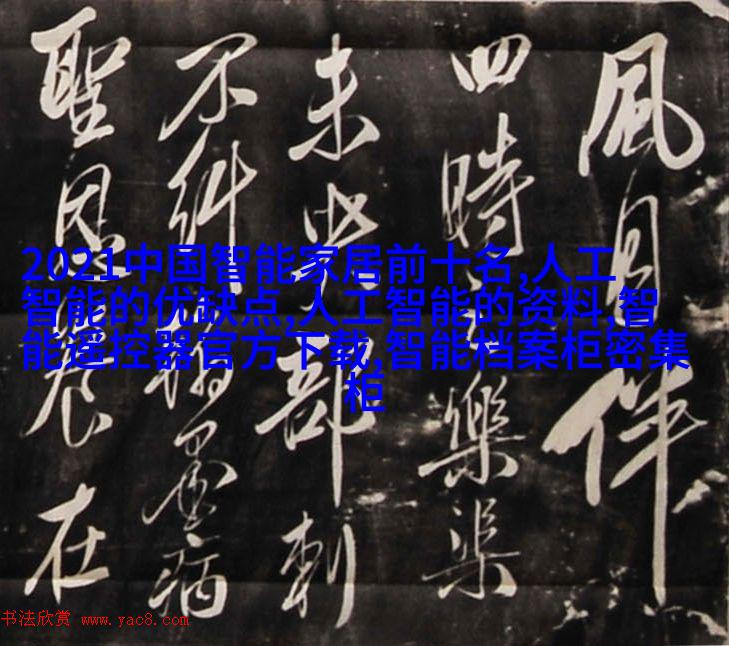 風月伴
四時樂渠
未部刺
不糾墨病
聖恩在
2021中国智能家居前十名,人工
智能的优缺点,人工智能的资料,智
能遥控器官方下载,智能档案柜密集
柜
书法欣赏 www.yac8.com